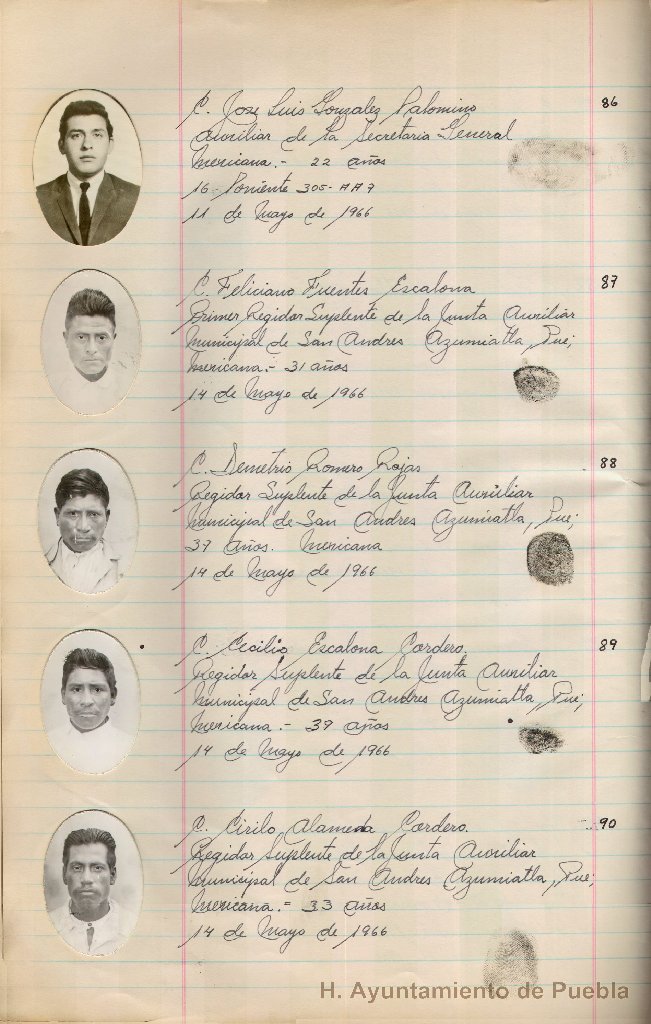 86
C. Jose Luis Gonzalez Palomino
Auxiliar de la Secretaria General
Mexicana.- 22 años
16-Poniente 305-AA7
11 de Mayo de 1966
87
C. Feliciano Fuentes Escalona
Primer Regidor Suplente de la Junta Auxiliar
Municipal de San Andres Azumiatla, Pue;
Mexicana.- 31 años
14 de Mayo de 1966
88
C. Demetrio Romero Rojas
Regidor Suplente de la Junta Auxiliar
Municipal de San Andres Azumiatla, Pue;
37 años. Mexicana
14 de Mayo de 1966
89
C. Cecilio Escalona Cordero.
Regidor Suplente de la Junta Auxiliar
Municipal de San Andres Azumiatla, Pue;
Mexicana.- 39 años
14 de Mayo de 1966
90
C. Cirilo Alameda Cordero.
Regidor Suplente de la Junta Auxiliar
Municipal de San Andres Azumiatla, Pue;
Mexicana.- 33 años
14 de Mayo de 1966
H. Ayuntamiento de Puebla